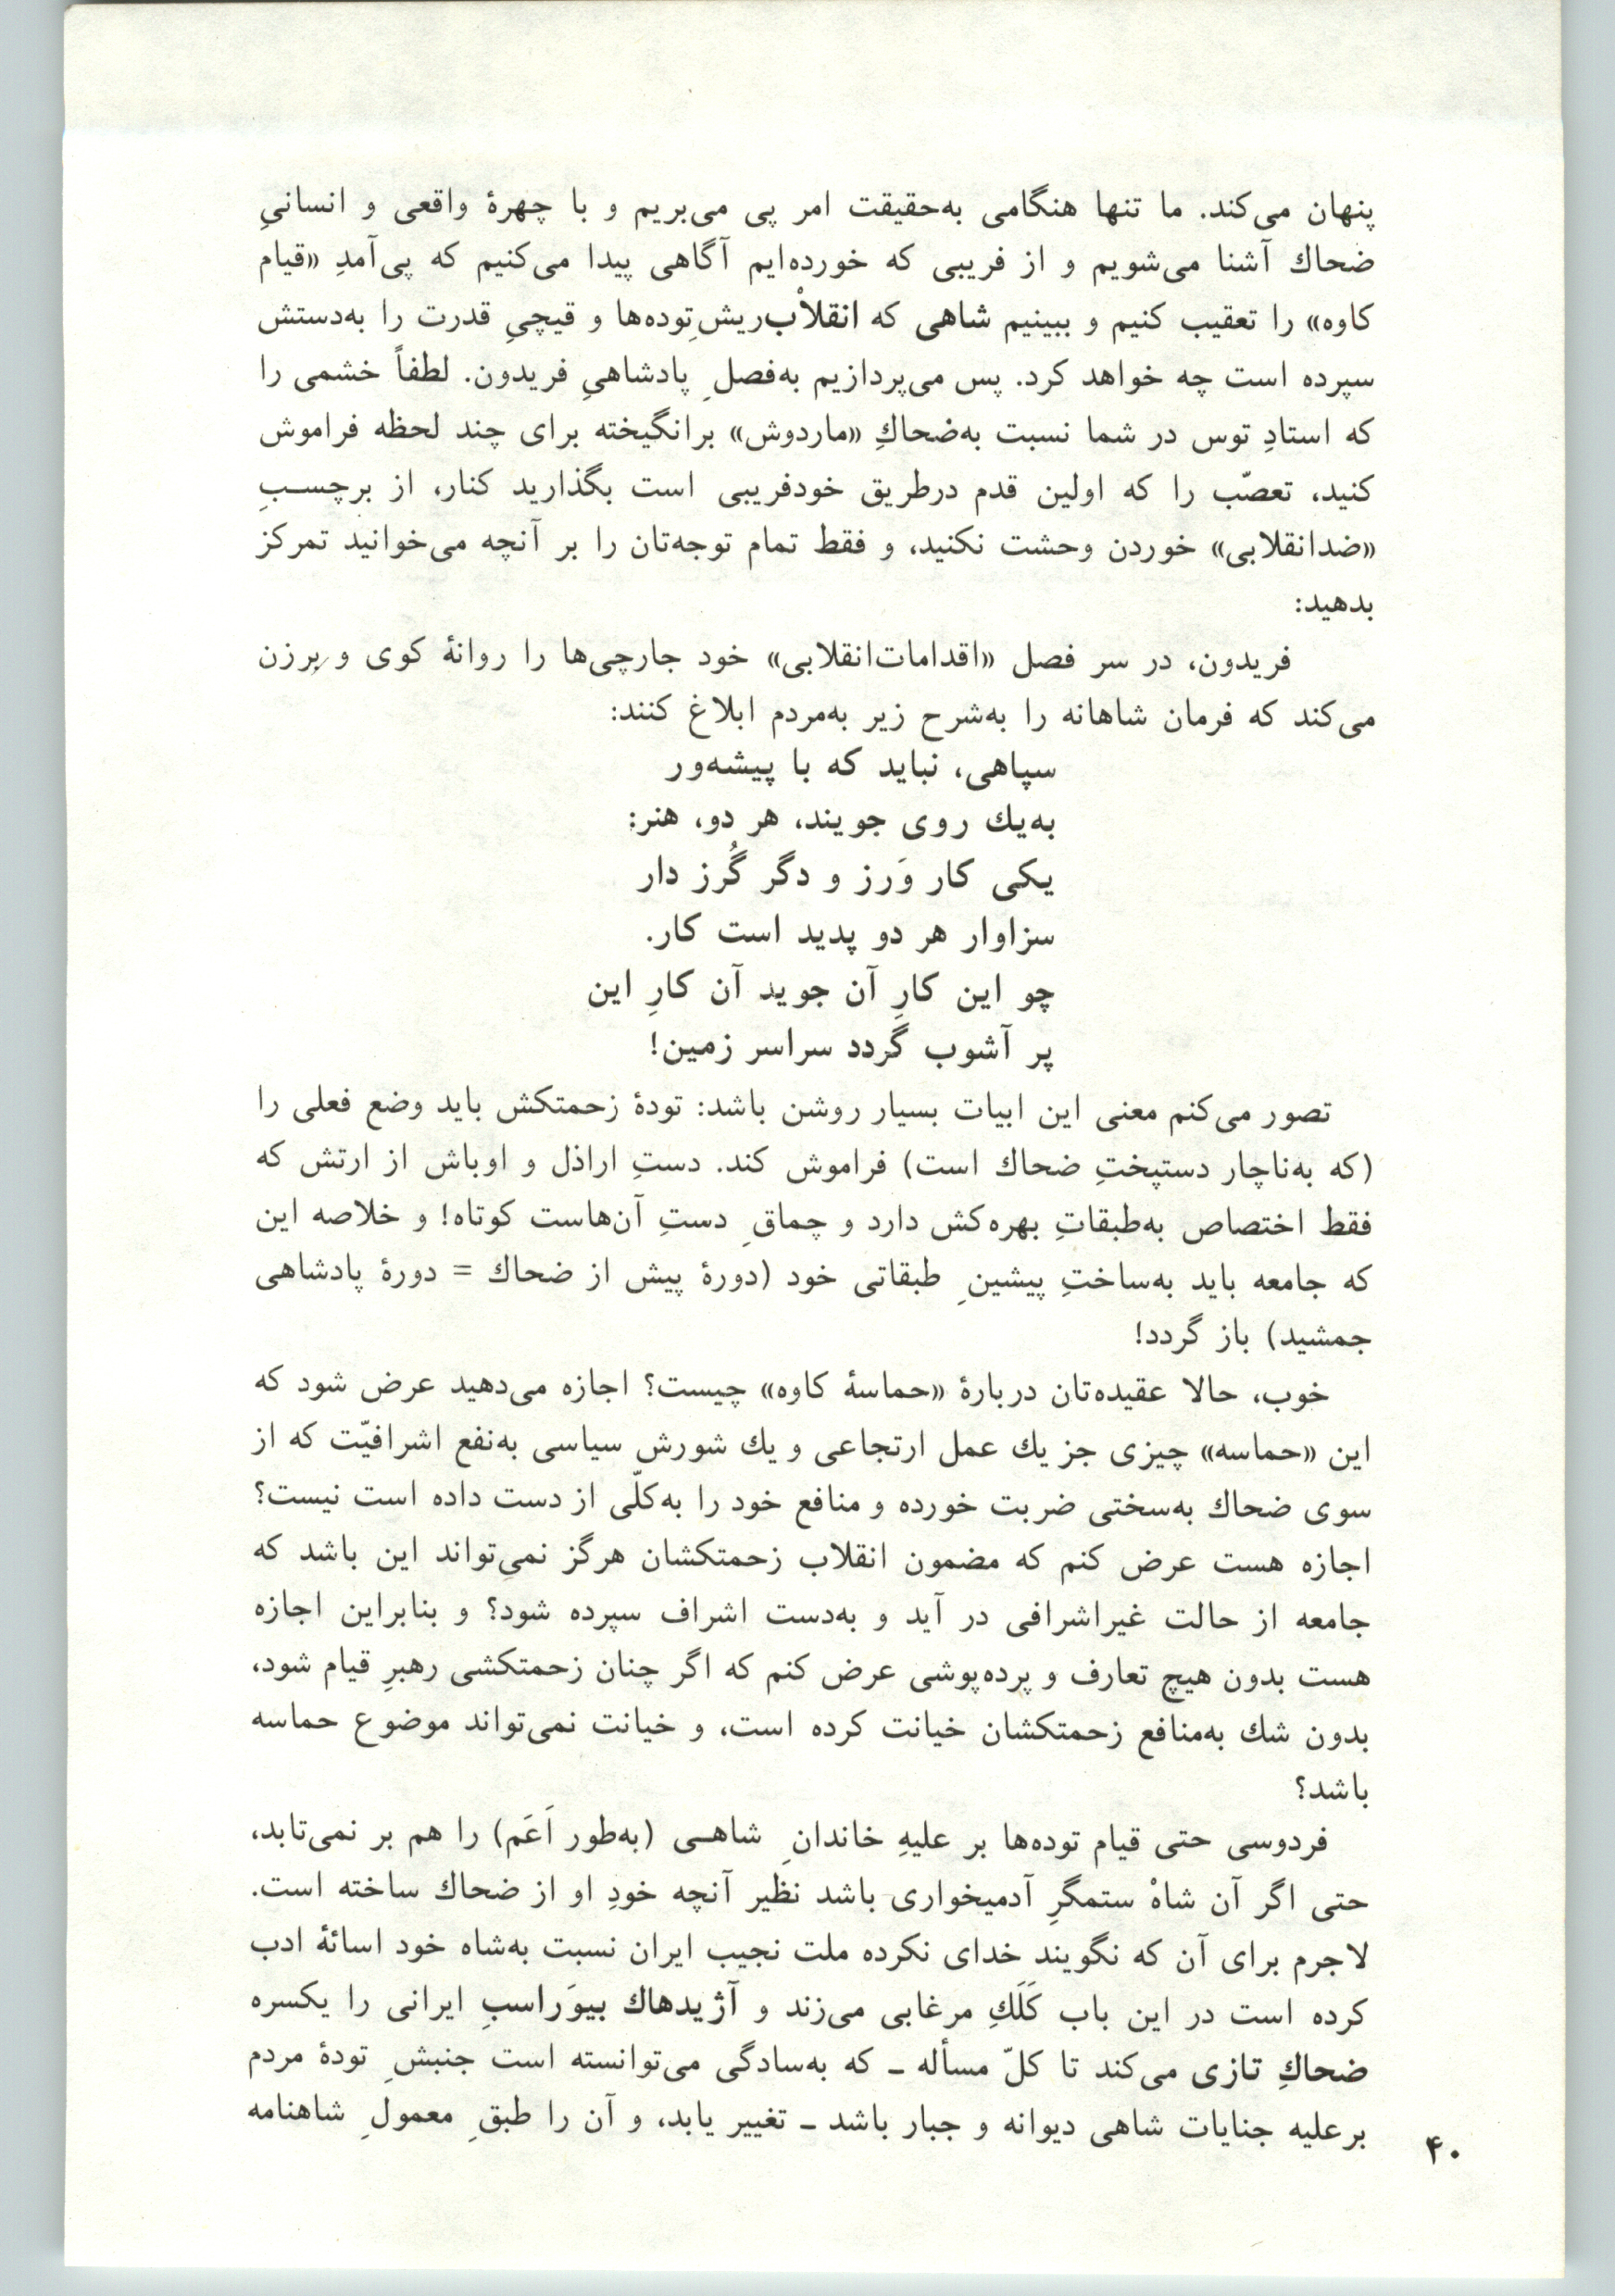 پنهان می‌کند. ما تنها هنگامی به‌حقیقت امر پی می‌بریم و با چهرهٔ واقعی و انسانیِ
ضحاك آشنا می‌شویم و از فریبی که خورده‌ایم آگاهی پیدا می‌کنیم که پی‌آمدِ «قیام
کاوه» را تعقیب کنیم و ببینیم شاهی که انقلاْب‌ریش ِتوده‌ها و قیچیِ قدرت را به‌دستش
سپرده است چه خواهد کرد. پس می‌پردازیم به‌فصل ِ پادشاهیِ فریدون. لطفاً خشمی را
که استادِ توس در شما نسبت به‌ضحاكِ «ماردوش» برانگیخته برای چند لحظه فراموش
کنید، تعصّب را که اولین قدم درطریق خودفریبی است بگذارید کنار، از برچسـبِ
«ضدانقلابی» خوردن وحشت نکنید، و فقط تمام توجه‌تان را بر آنچه می‌خوانید تمرکز
بدهید:
فریدون، در سر فصل «اقدامات‌انقلابی» خود جارچی‌ها را روانهٔ کوی و برزن
می‌کند که فرمان شاهانه را به‌شرح زیر به‌مردم ابلاغ کنند:
سپاهی، نباید که با پیشه‌ور
به‌یك روی جویند، هر دو، هنر:
یکی کار وَرز و دگر گُرز دار
سزاوار هر دو پدید است کار.
چو این کارِ آن جوید آن کارِ این
پر آشوب گردد سراسر زمین!
تصور می‌کنم معنی این ابیات بسیار روشن باشد: تودهٔ زحمتکش باید وضع فعلی را
(که به‌ناچار دستپختِ ضحاك است) فراموش کند. دستِ اراذل و اوباش از ارتش که
فقط اختصاص به‌طبقاتِ بهره‌کش دارد و چماق ِ دستِ آن‌هاست کوتاه! و خلاصه این
که جامعه باید به‌ساختِ پیشین ِ طبقاتی خود (دورهٔ پیش از ضحاك = دورهٔ پادشاهی
جمشید) باز گردد!
خوب، حالا عقیده‌تان دربارهٔ «حماسهٔ کاوه» چیست؟ اجازه می‌دهید عرض شود که
این «حماسه» چیزی جز یك عمل ارتجاعی و یك شورش سیاسی به‌نفع اشرافیّت که از
سوی ضحاك به‌سختی ضربت خورده و منافع خود را به‌کلّی از دست داده است نیست؟
اجازه هست عرض کنم که مضمون انقلاب زحمتکشان هرگز نمی‌تواند این باشد که
جامعه از حالت غیراشرافی در آید و به‌دست اشراف سپرده شود؟ و بنابراین اجازه
هست بدون هیچ تعارف و پرده‌پوشی عرض کنم که اگر چنان زحمتکشی رهبرِ قیام شود،
بدون شك به‌منافع زحمتکشان خیانت کرده است، و خیانت نمی‌تواند موضوع حماسه
باشد؟
فردوسی حتی قیام توده‌ها بر علیهِ خاندان ِ شاهـی (به‌طور اَعَم) را هم بر نمی‌تابد،
حتی اگر آن شاهْ ستمگرِ آدمیخواری باشد نظیر آنچه خودِ او از ضحاك ساخته است.
لاجرم برای آن که نگویند خدای نکرده ملت نجیب ایران نسبت به‌شاه خود اسائهٔ ادب
کرده است در این باب کَلَكِ مرغابی می‌زند و آژیدهاك بیوَراسبِ ایرانی را یکسره
ضحاكِ تازی می‌کند تا کلّ مسأله ـ که به‌سادگی می‌توانسته است جنبش ِ تودهٔ مردم
برعلیه جنایات شاهی دیوانه و جبار باشد ـ تغییر یابد، و آن را طبق ِ معمول ِ شاهنامه
۴۰